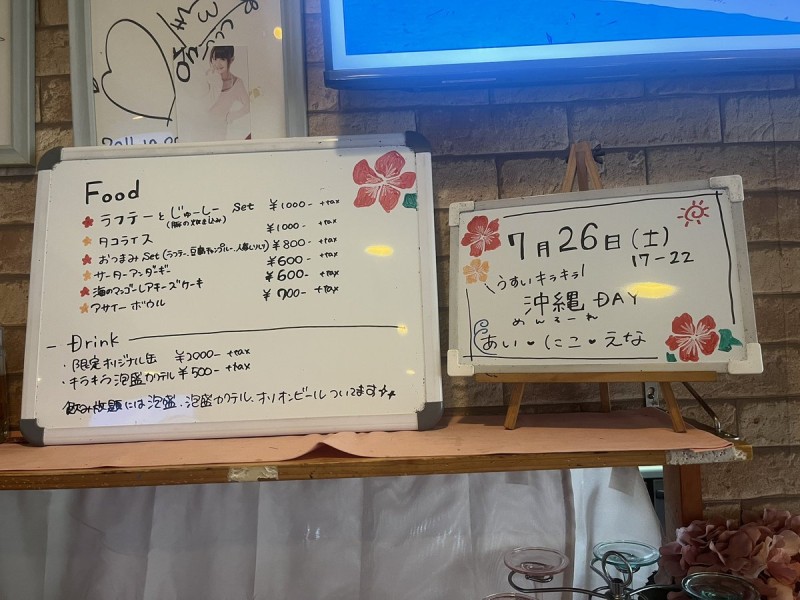 2011.10.0
Food
ラフテーとじゅーしー Set ¥1000- +tax
(豚の炊き込み)
タコライス ¥1000- +tax
おつまみ Set (ラフテー、豆腐チャンプルー、人参しりしり) ¥800- +tax
サーターアンダギー ¥600- +tax
海のマンゴーレアチーズケーキ ¥600- +tax
アサイーボウル ¥700- +tax
Drink
・限定オリジナル缶 ¥2000- +tax
・キラキラ泡盛カクテル ¥500- +tax
飲み放題には泡盛、泡盛カクテル、オリオンビールついてます☆★
7月26日(土)
17-22
\うすいキラキラ/
沖縄 DAY
めんそーれ
あい・にこ・えな